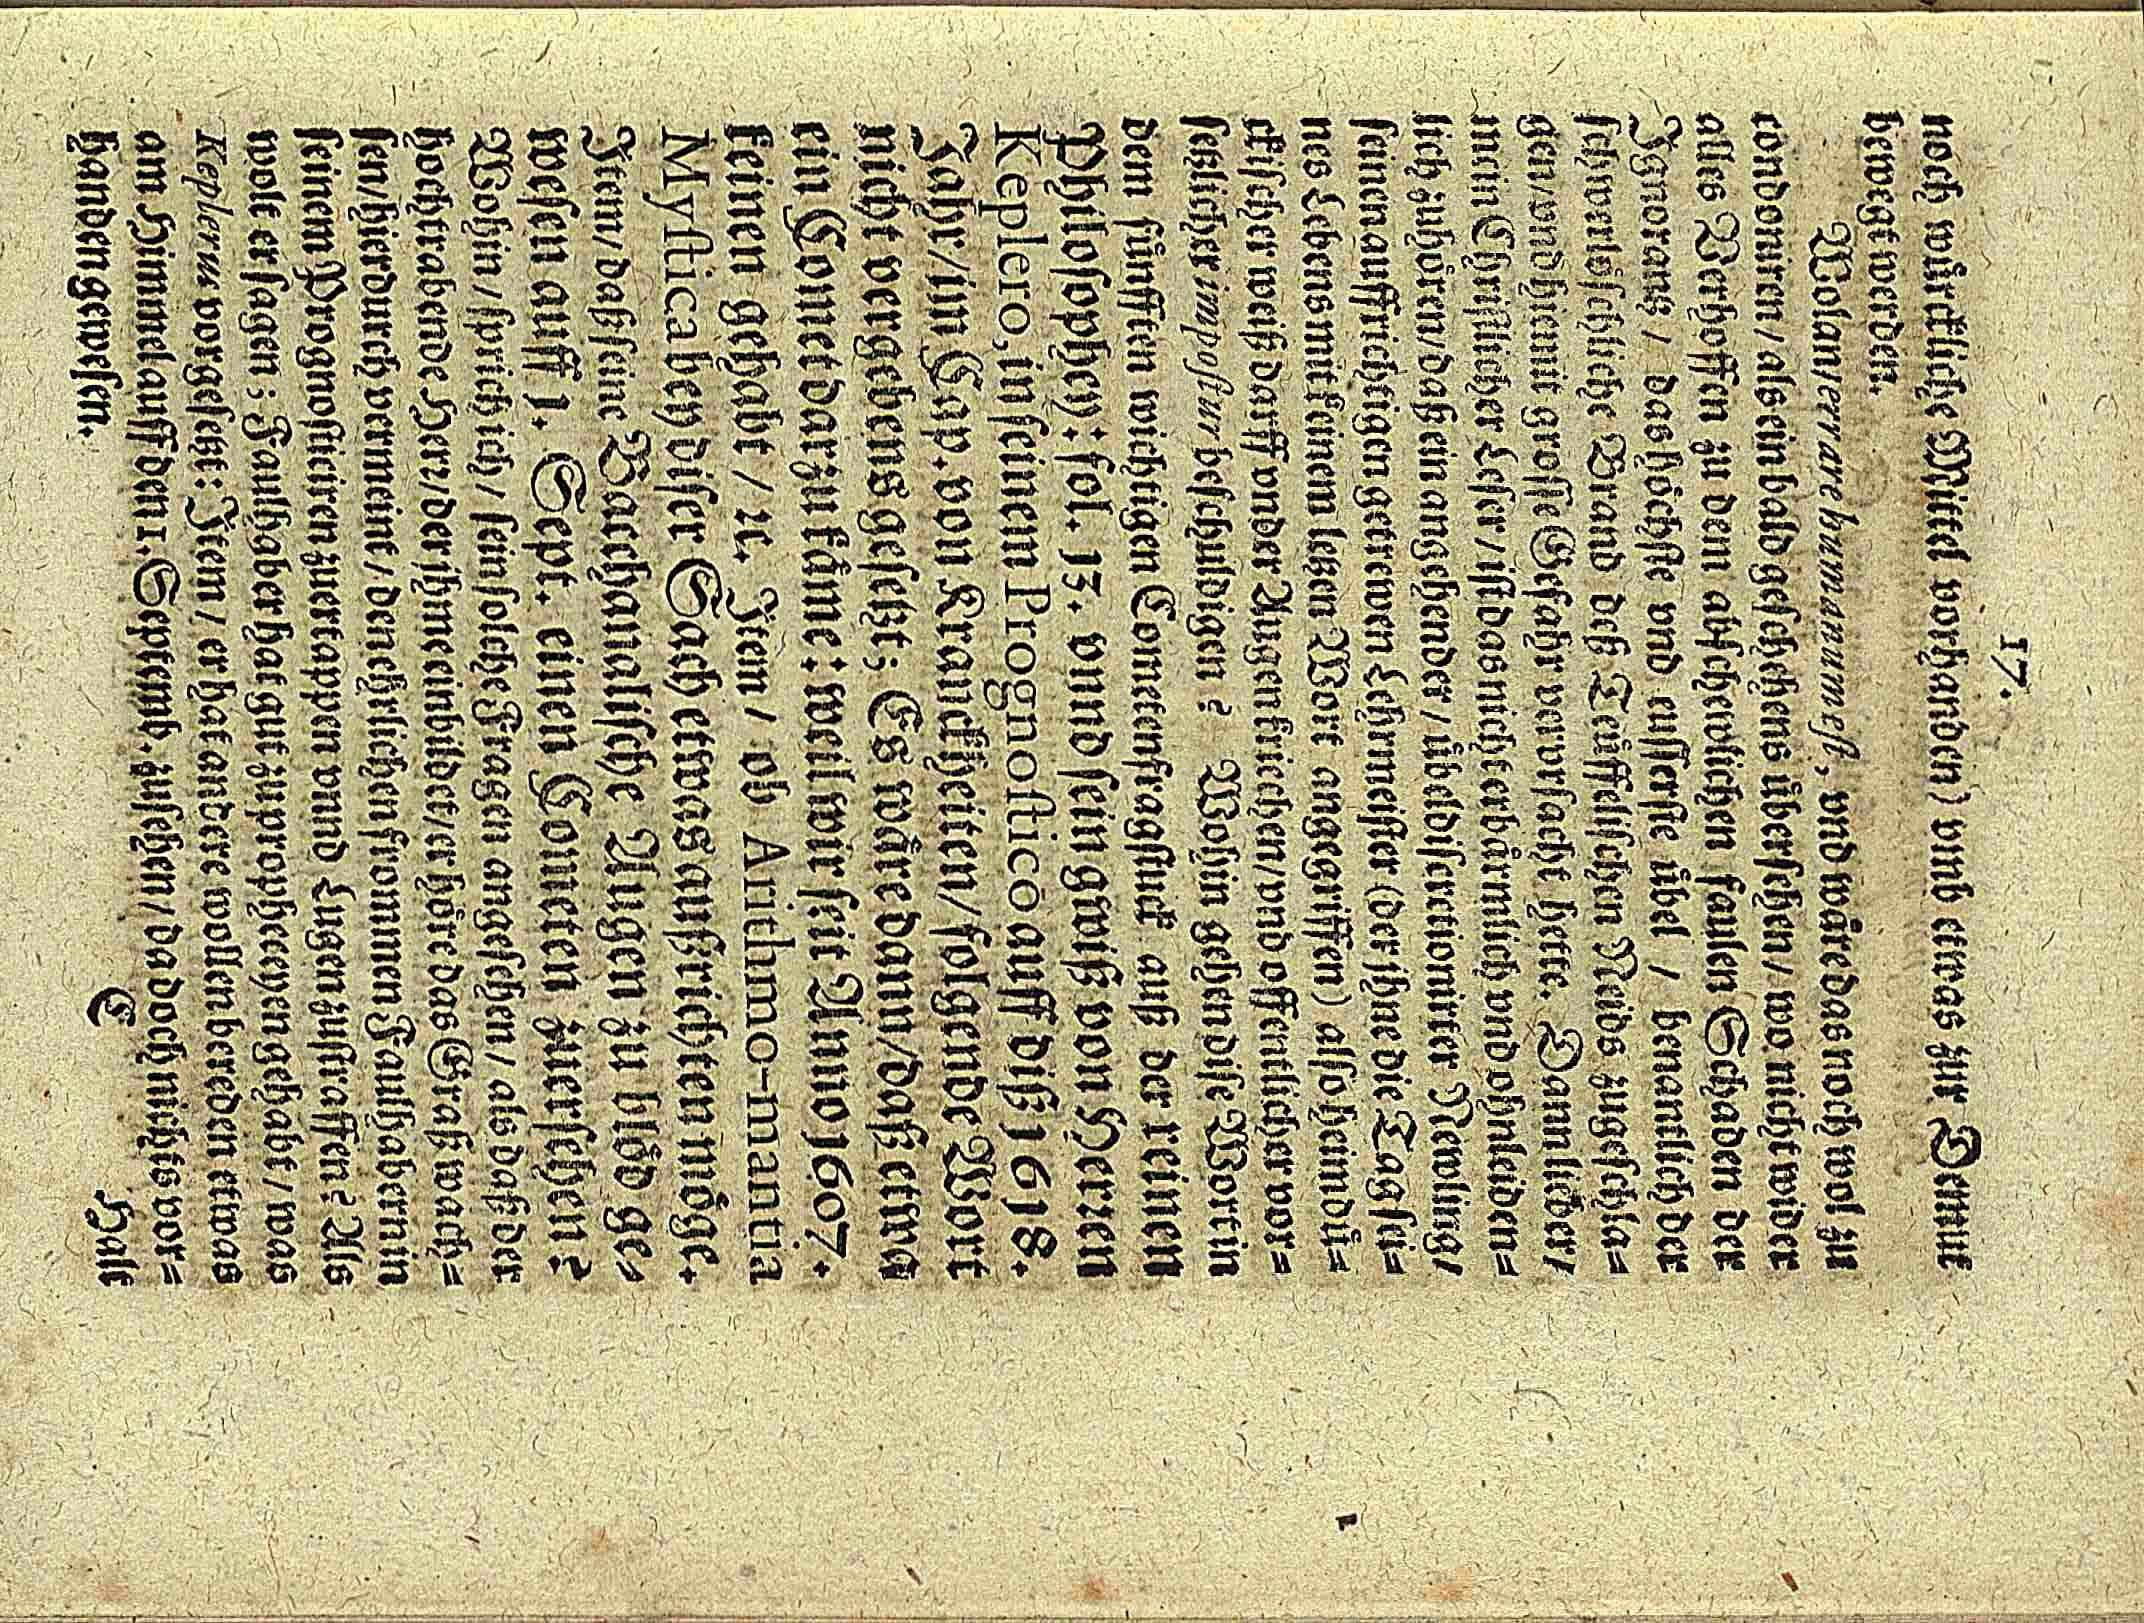 17.
noch würckliche Mittel vorhanden) vnnd etwas zur Demut
bewegt werden.
Wolan errare humanum est, vnd wäre das noch wol zu
condoniren/ als ein bald geschehens übersehen/ wo nicht wider
alles Verhoffen zu dem abschewlichen faulen Schaden der
Ignorantz/ das höchste vnd eusserste übel/ benantlich der
schwerlöschliche Brand deß Teüffelischen Neids zugeschla=
gen/ vnd hiemit grosse Gefahr verursacht hette. Dann lieber/
mein Christlicher Leser/ ist das nicht erbärmlich vnd ohnleiden=
lich zuhören/ daß ein angehender/ übeldiscretionirter Newling/
seinen auffrichtigen getrewen Lehrmeister (der ihne die Tag sei=
nes Lebens mit keinem letzen Wort angegriffen) also heimdü=
ckischer weiß darff vnder Augen kriechen/ vnd offentlicher vor=
setzlicher impostur beschuldigen? Wohin gehen dise Wort in
dem fünfften wichtigen Cometenfragstuck auß der reinen
Philosophey: fol. 13. vnnd sein gwiß von Herren
Keplero, in seinem Prognosticō auff diß 1618.
Jahr/ im Cap. von Kranckheiten/ folgende Wort
nicht vergebens gesetzt; Es wäre dann/ daß etwa
ein Comet darzu käme: weil wir seit Anno 1607.
keinen gehabt/ ꝛc. Item/ ob Arithmo-mantia
Mystica bey diser Sach etwas außrichten möge.
Item/ daß seine Bacchanalische Augen zu blöd ge=
wesen auff 1. Sept. einen Cometen zuersehen?
Wohin/ sprich ich/ sein solche Fragen angesehen/ als daß der
hochtrabende Herr/ der ihme einbildet/ er höre das Graß wach=
sen/ hierdurch vermeint/ den ehrlichen frommen Faulhabern in
seinem Prognosticiren zuertappen vnnd Lugen zustraffen? Als
wolt er sagen; Faulhaber hat gut zupropheceyen gehabt/ was
Keplerus vorgesetzt: Item/ er hat andere wollen bereden etwas
am Himmel auff den 1. Septemb. zusehen/ da doch nichts vor=
handen gewesen.
C Halt